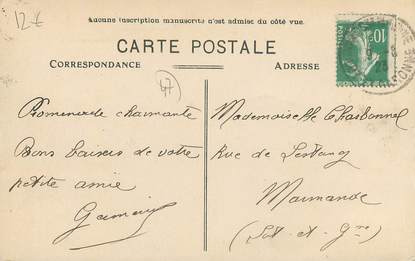 12 €
Aucune inscription manuscrite n'est admise du côté vue.
CARTE POSTALE
CORRESPONDANCE
ADRESSE
47
10c
Promenade charmante
Bons baisers de votre
petite amie
Mademoiselle Charbonnel
Rue de
Marmande
(Lot et Gne)